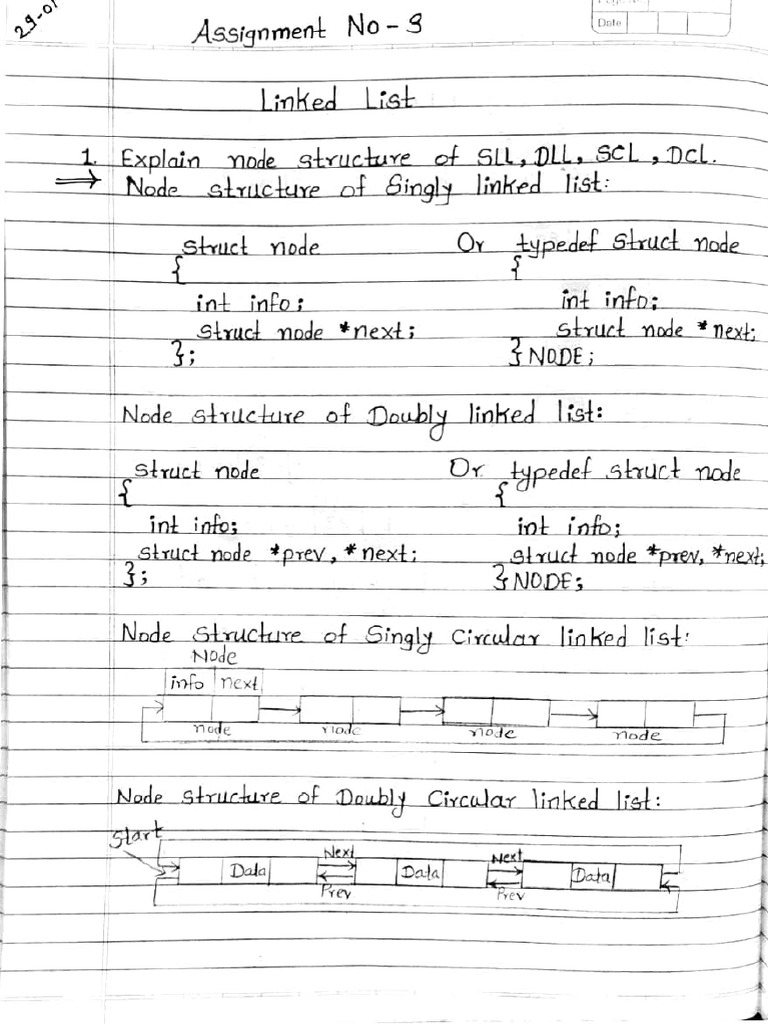 29-01
Assignment No - 3
Date
Linked List
1. Explain node structure of SLL, DLL, SCL, DCL.
⇒ Node structure of Singly linked list:
struct node Or typedef struct node
{ {
int info; int info;
struct node *next; struct node *next;
}; } NODE;
Node structure of Doubly linked list:
struct node Or typedef struct node
{ {
int info; int info;
struct node *prev, *next; struct node *prev, *next;
}; } NODE;
Node structure of Singly Circular linked list:
Node
info next
node node node node
Node structure of Doubly Circular linked list:
Start
Next Next
Data Data Data
Prev Prev